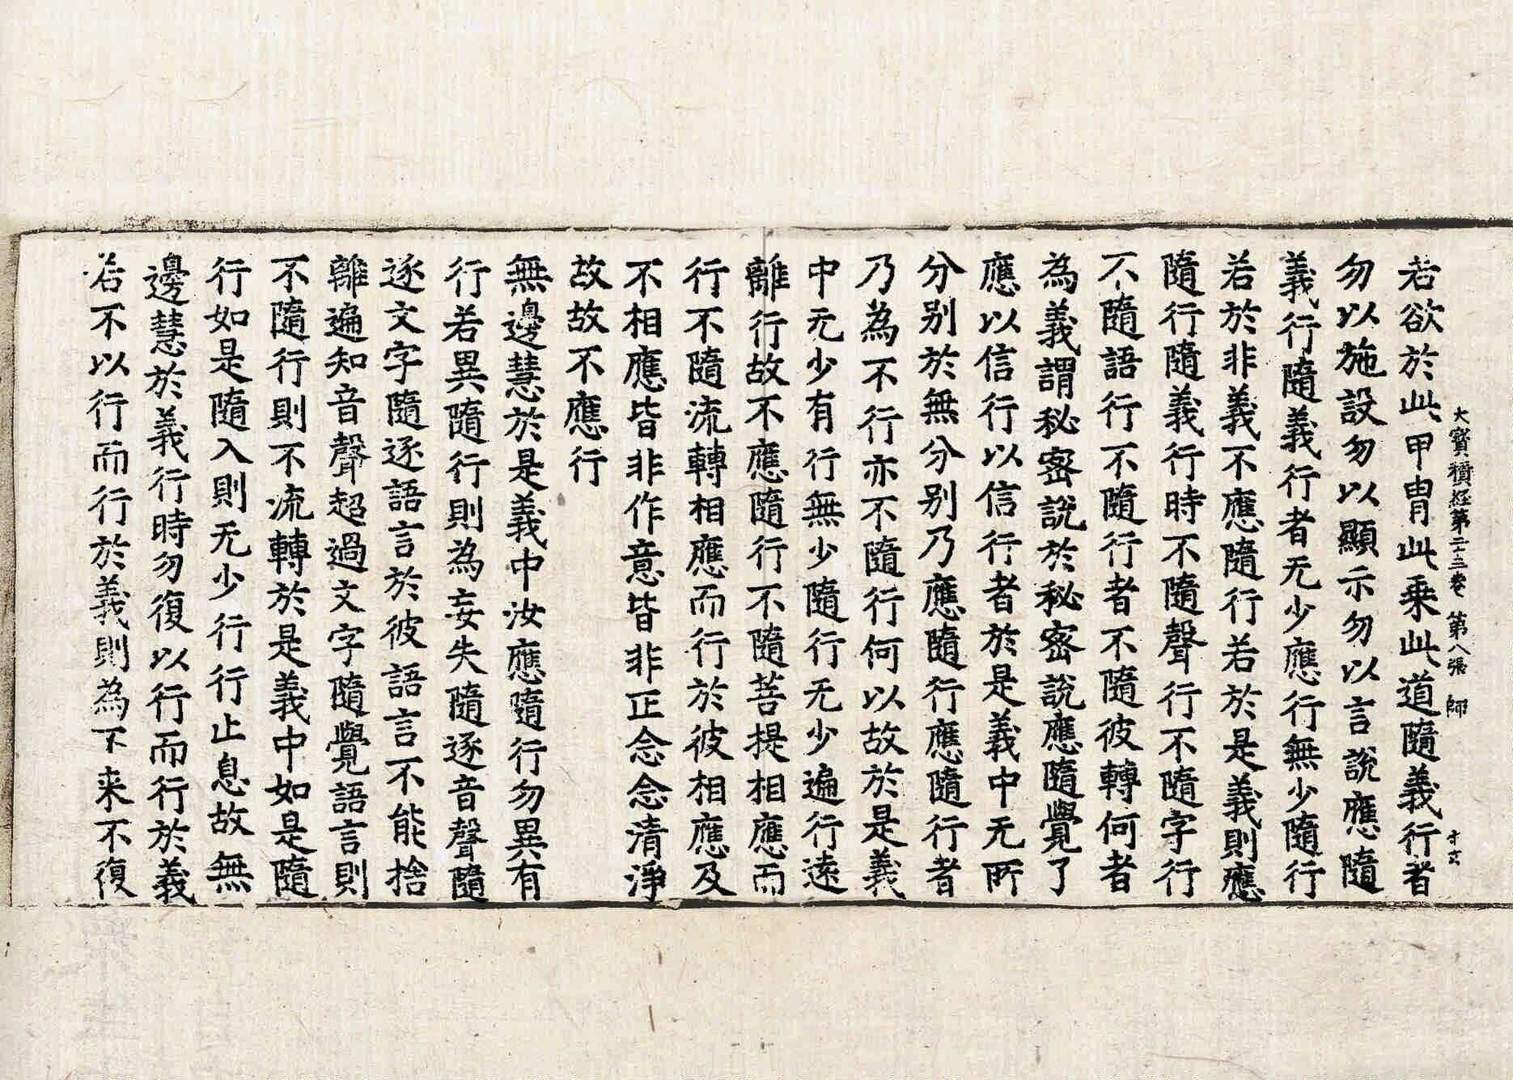 大寶積經第二十三卷 第八張 師
若欲於此甲冑此乘此道隨義行者
勿以施設勿以顯示勿以言說應隨
義行隨義行者无少應行無少隨行
若於非義不應隨行若於是義則應
隨行隨義行時不隨聲行不隨字行
不隨語行不隨行者不隨彼轉何者
為義謂秘密說於秘密說應隨覺了
應以信行以信行者於是義中无所
分别於無分别乃應隨行應隨行者
乃為不行亦不隨行何以故於是義
中无少有行無少隨行无少遍行遠
離行故不應隨行不隨菩提相應而
行不隨流轉相應而行於彼相應及
不相應皆非作意皆非正念念清淨
故故不應行
無邊慧於是義中汝應隨行勿異有
行若異隨行則為妄失隨逐音聲隨
逐文字隨逐語言於彼語言不能捨
離遍知音聲超過文字隨覺語言則
不隨行則不流轉於是義中如是隨
行如是隨入則无少行行止息故無
邊慧於義行時勿復以行而行於義
若不以行而行於義則為不来不復